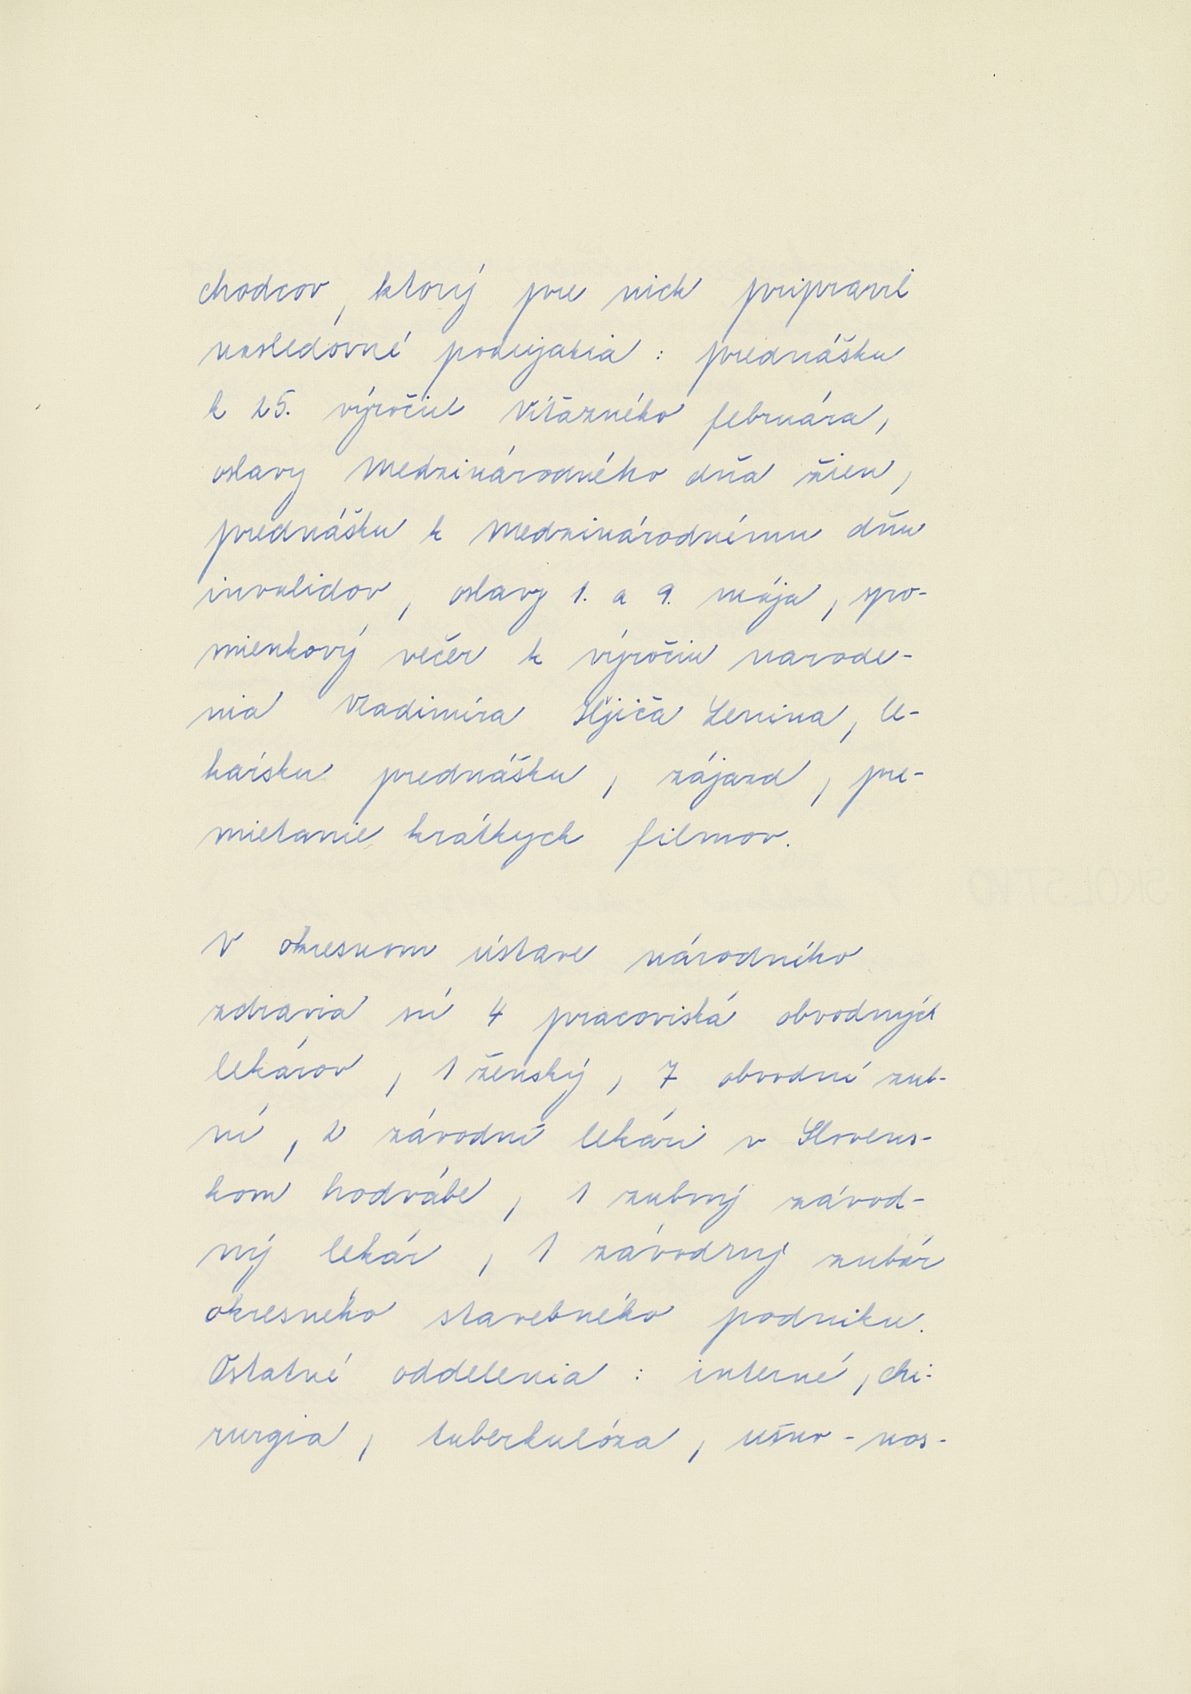 chodcov, ktorý pre nich pripravil
nasledovné podujatia : prednášku
k 25. výročiu Víťazného februára,
oslavy Medzinárodného dňa žien,
prednášku k Medzinárodnému dňu
invalidov, oslavy 1. a 9. mája, spo-
mienkový večer k výročiu narode-
nia Vladimíra Iljiča Lenina, le-
kársku prednášku, zájazd, pre-
mietanie krátkych filmov.
V okresnom ústave národného
zdravia sú 4 pracoviská obvodných
lekárov, 1 ženský, 7 obvodní zub-
ní, 2 závodní lekári v Slovens-
kom hodvábe, 1 zubný závod-
ný lekár, 1 závodný zubár
okresného stavebného podniku.
Ostatné oddelenia : interné, chi-
rurgia, tuberkulóza, ušno-nos-